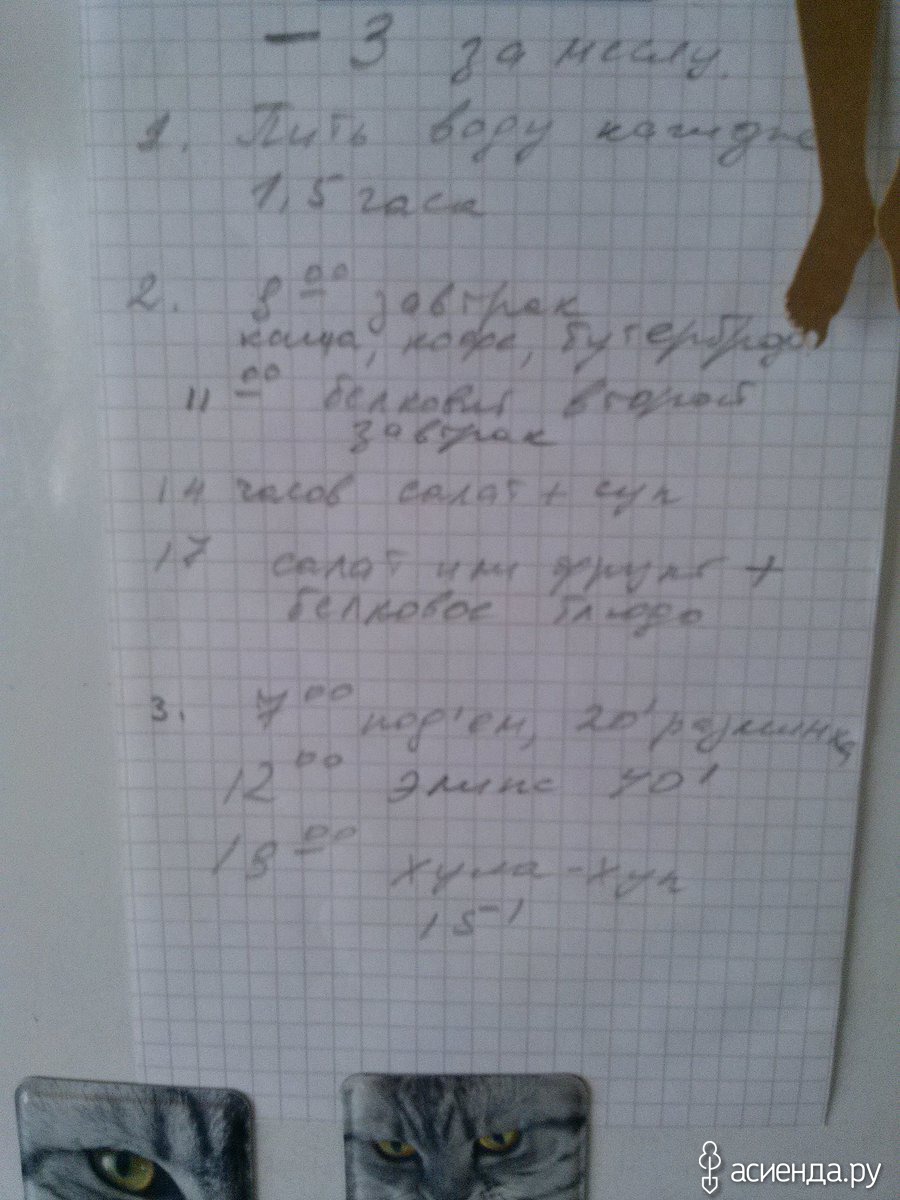 - 3 за месяц.
1. Пить воду каждые
1,5 часа
2. 8 00 завтрак
каша, кофе, бутерброд
11 00 белковый второй
завтрак
14 часов салат + суп
17 салат или фрукт +
белковое блюдо
3. 7 00 под'ем, 20' разминка
12 00 элипс 40'
18 00 хула-хуп
15'
асиенда.ру